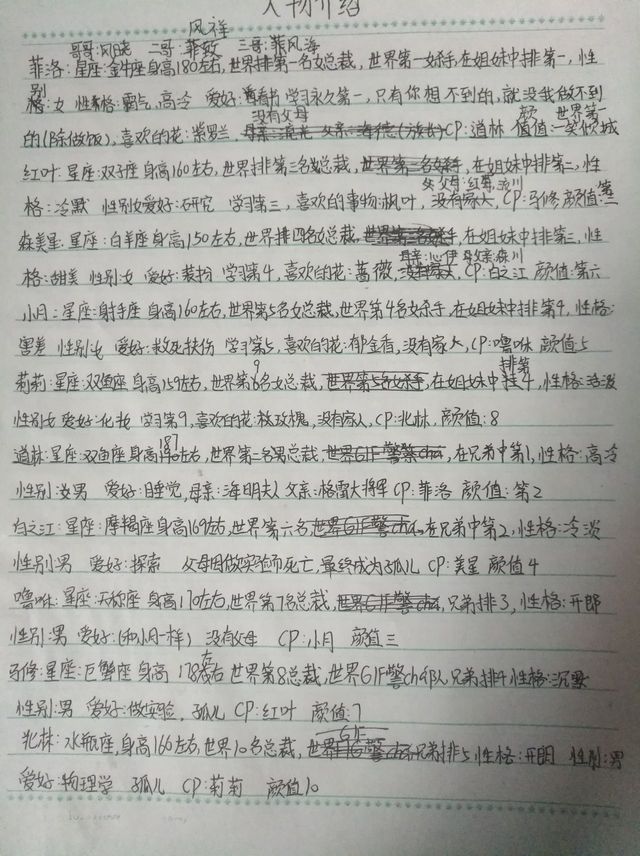 人物介绍
风祥
哥哥:风晓 二哥:菲致 三哥:菲风
菲洛:星座:金牛座身高180左右,世界排第一名女总裁,世界第一女杀手,在姐妹中排第一,性
别
格:女 性格:霸气,高冷 爱好:看书 学习永久第一,只有你想不到的,就没我做不到
没有父母 颜 世界第一
的(除做饭),喜欢的花:紫罗兰, CP:道林 值:一笑倾城
红叶:星座:双子座 身高160左右,世界排第三名女总裁,世界第三名杀手,在姐妹中排第二,性
父母:红 川
格:冷默 性别女爱好:研究 学习第三,喜欢的事物:枫叶,没有家人,CP:马修 颜值:
森美星:星座:白羊座身高150左右,世界排四名女总裁, 在姐妹中排第三,性
母亲:心伊 母父亲:森川
格:甜美 性别:女 爱好:装扮 学习第4,喜欢的花:蔷薇,没有家人,CP:白之江 颜值:第六
小月:星座:射手座身高160左右,世界第5名女总裁,世界第4名女杀手,在姐妹中排第4,性格:
害羞 性别:女 爱好:救死扶伤 学习第5,喜欢的花:郁金香,没有家人,CP:噜咪 颜值5
9 排第
莉莉:星座:双鱼座 身高159左右,世界第6名女总裁,世界第5名女杀手,在姐妹中 4,性格:活泼
性别女 爱好:化妆 学习第9,喜欢的花:玫瑰,没有家人,CP:兆林,颜值:8
187
道林:星座:双鱼座身高 左右,世界第二名男总裁,世界GIF警察cha,在兄弟中第1,性格:高冷
性别:女男 爱好:睡觉,母亲:海明夫人 父亲:格雷大将军 CP:菲洛 颜值:第2
白之江:星座:摩羯座身高169左右,世界第六名 世界GIF警cha,在兄弟中第2,性格:冷淡
性别:男 爱好:探索 父母因做实验而死亡,最终成为孤儿 CP:美星 颜值4
噜咪:星座:天称座 身高170左右,世界第7名总裁,世界GIF警cha,兄弟排3,性格:开郎
性别:男 爱好:(和小月一样) 没有父母 CP:小月 颜值三
左
马修:星座:巨蟹座 身高178左右 世界第8总裁,世界GIF警cha队兄弟排4 性格:沉默
性别:男 爱好:做实验,孤儿 CP:红叶 颜值:7
GIF
兆林:水瓶座,身高166左右,世界10名总裁,世界 警cha兄弟排5 性格:开朗 性别:男
爱好:物理学 孤儿 CP:莉莉 颜值10